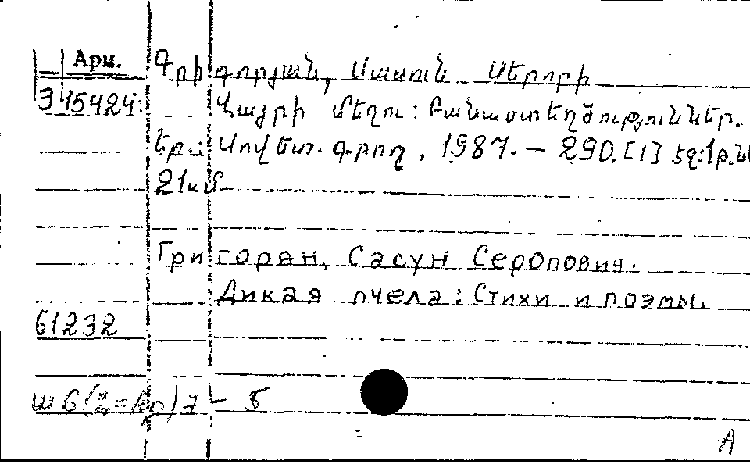 Арм. Գրիգորյան, Սասուն Սերոբի
3 15424 Վայրի մեղու: Բանաստեղծություններ.
Եր.: Սովետ. գրող, 1987. – 290. [1] էջ:
21սմ
Григорян, Сасун Серопович.
Дикая пчела: Стихи и поэмы.
61232
– 5
А